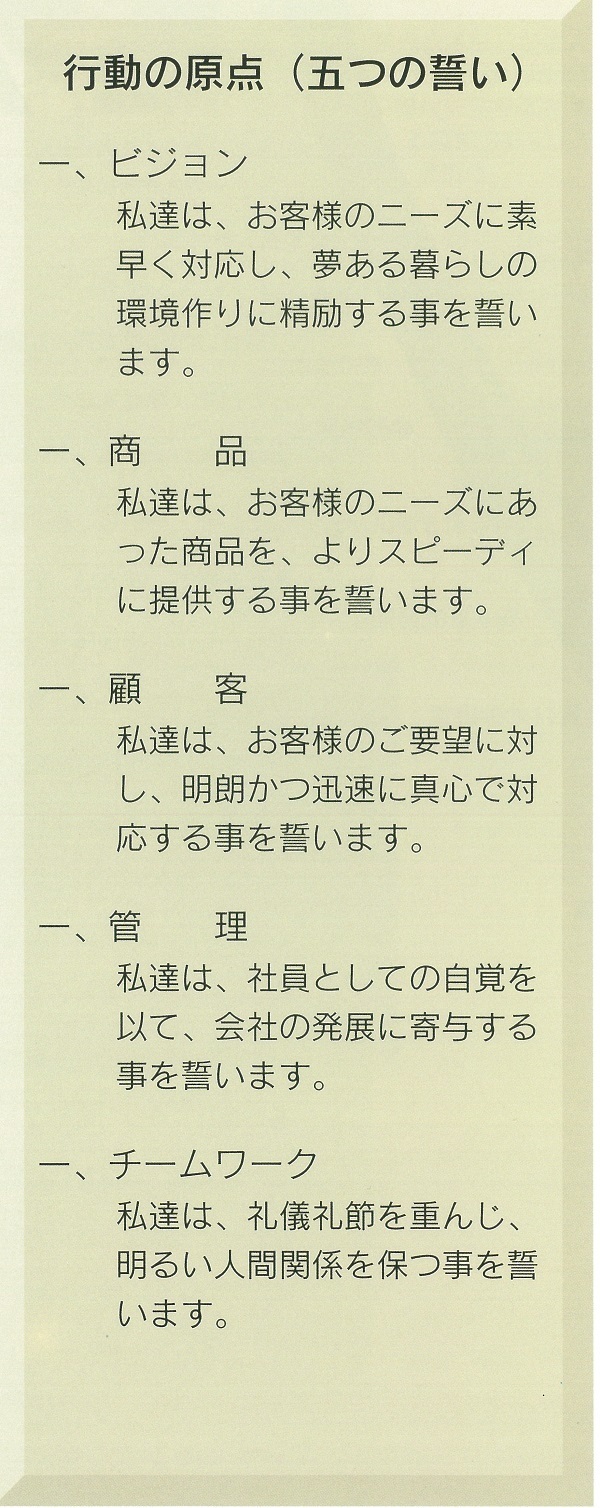 行動の原点（五つの誓い）
一、ビジョン
私達は、お客様のニーズに素
早く対応し、夢ある暮らしの
環境作りに精励する事を誓い
ます。
一、商　　品
私達は、お客様のニーズにあ
った商品を、よりスピーディ
に提供する事を誓います。
一、顧　　客
私達は、お客様のご要望に対
し、明朗かつ迅速に真心で対
応する事を誓います。
一、管　　理
私達は、社員としての自覚を
以て、会社の発展に寄与する
事を誓います。
一、チームワーク
私達は、礼儀礼節を重んじ、
明るい人間関係を保つ事を誓
います。